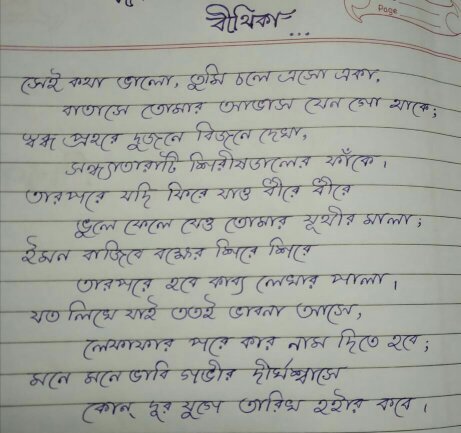 Page
বীথিকা...
সেই কথা ভালো, তুমি চলে এসো একা,
বাতাসে তোমার আভাস যেন গো থাকে;
স্তব্ধ প্রহরে দুজনে বিজনে দেখা,
সন্ধ্যাতারাটি শিরীষডালের ফাঁকে।
তারপরে যদি ফিরে যাও ধীরে ধীরে
ভুলে ফেলে যেও তোমার যূথীর মালা;
ইমন বাজিবে বক্ষের শিরে শিরে
তারপরে হবে কাব্য লেখার পালা।
যত লিখে যাই ততই ভাবনা আসে,
লেফাফার পরে কার নাম দিতে হবে;
মনে মনে ভাবি গভীর দীর্ঘশ্বাসে
কোন্ দূর যুগে তারিখ ইহার কবে।